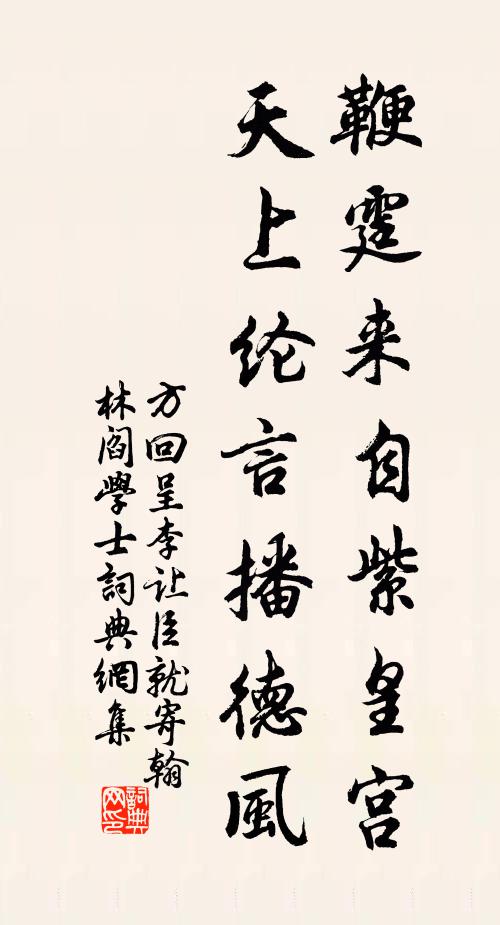 鞭霆来自紫皇宫
天上纶言播德風
方回呈李让臣就寄翰
林閻學士詞典網集
詞典网印